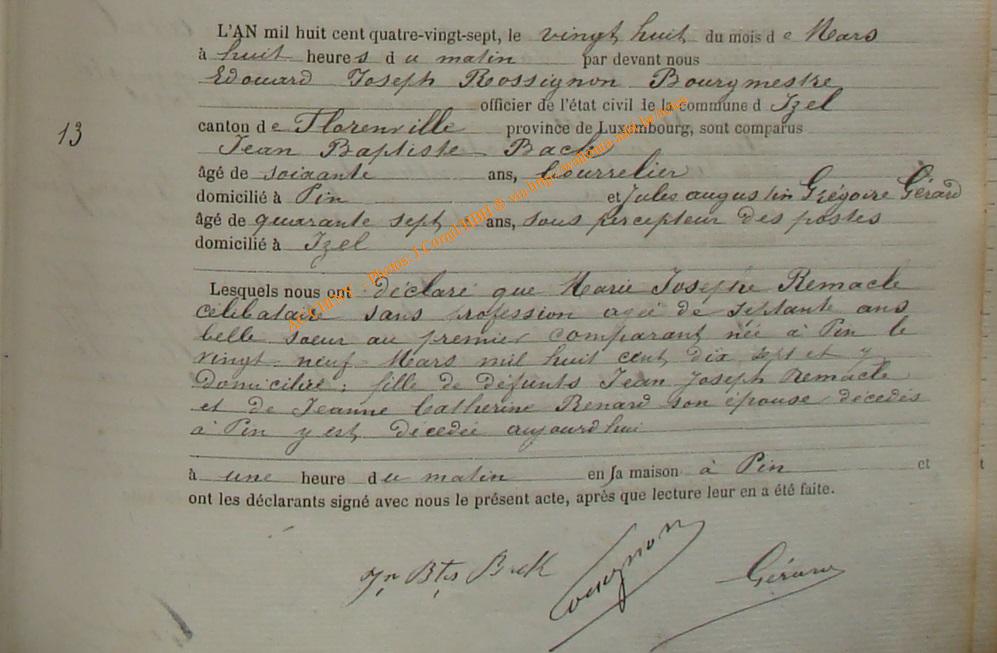 L'AN mil huit cent quatre-vingt-sept, le vingt huit du mois d e Mars
à huit heures d u matin par devant nous
Edouard Joseph Rossignon Bourgmestre
officier de l'état civil de la commune d Izel
13
canton d e Florenville province de Luxembourg, sont comparus
Jean Baptiste Back
âgé de soixante ans, bourrelier
domicilié à Pin et Jules augustin Grégoire Gérard
âgé de quarante sept ans, sous percepteur des postes
domicilié à Izel
Lesquels nous ont déclaré que Marie Josephe Remacle
célibataire sans profession agée de septante ans
belle soeur au premier comparant née à Pin le
vingt-neuf Mars mil huit cent dix sept et y
domiciliée; fille de défunts Jean Joseph Remacle
et de Jeanne Catherine Renard son épouse décedés
à Pin y est décedée aujourdhui
à une heure d u matin en sa maison à Pin et
ont les déclarants signé avec nous le présent acte, après que lecture leur en a été faite.
Jn Bte Back Rossignon Gérard